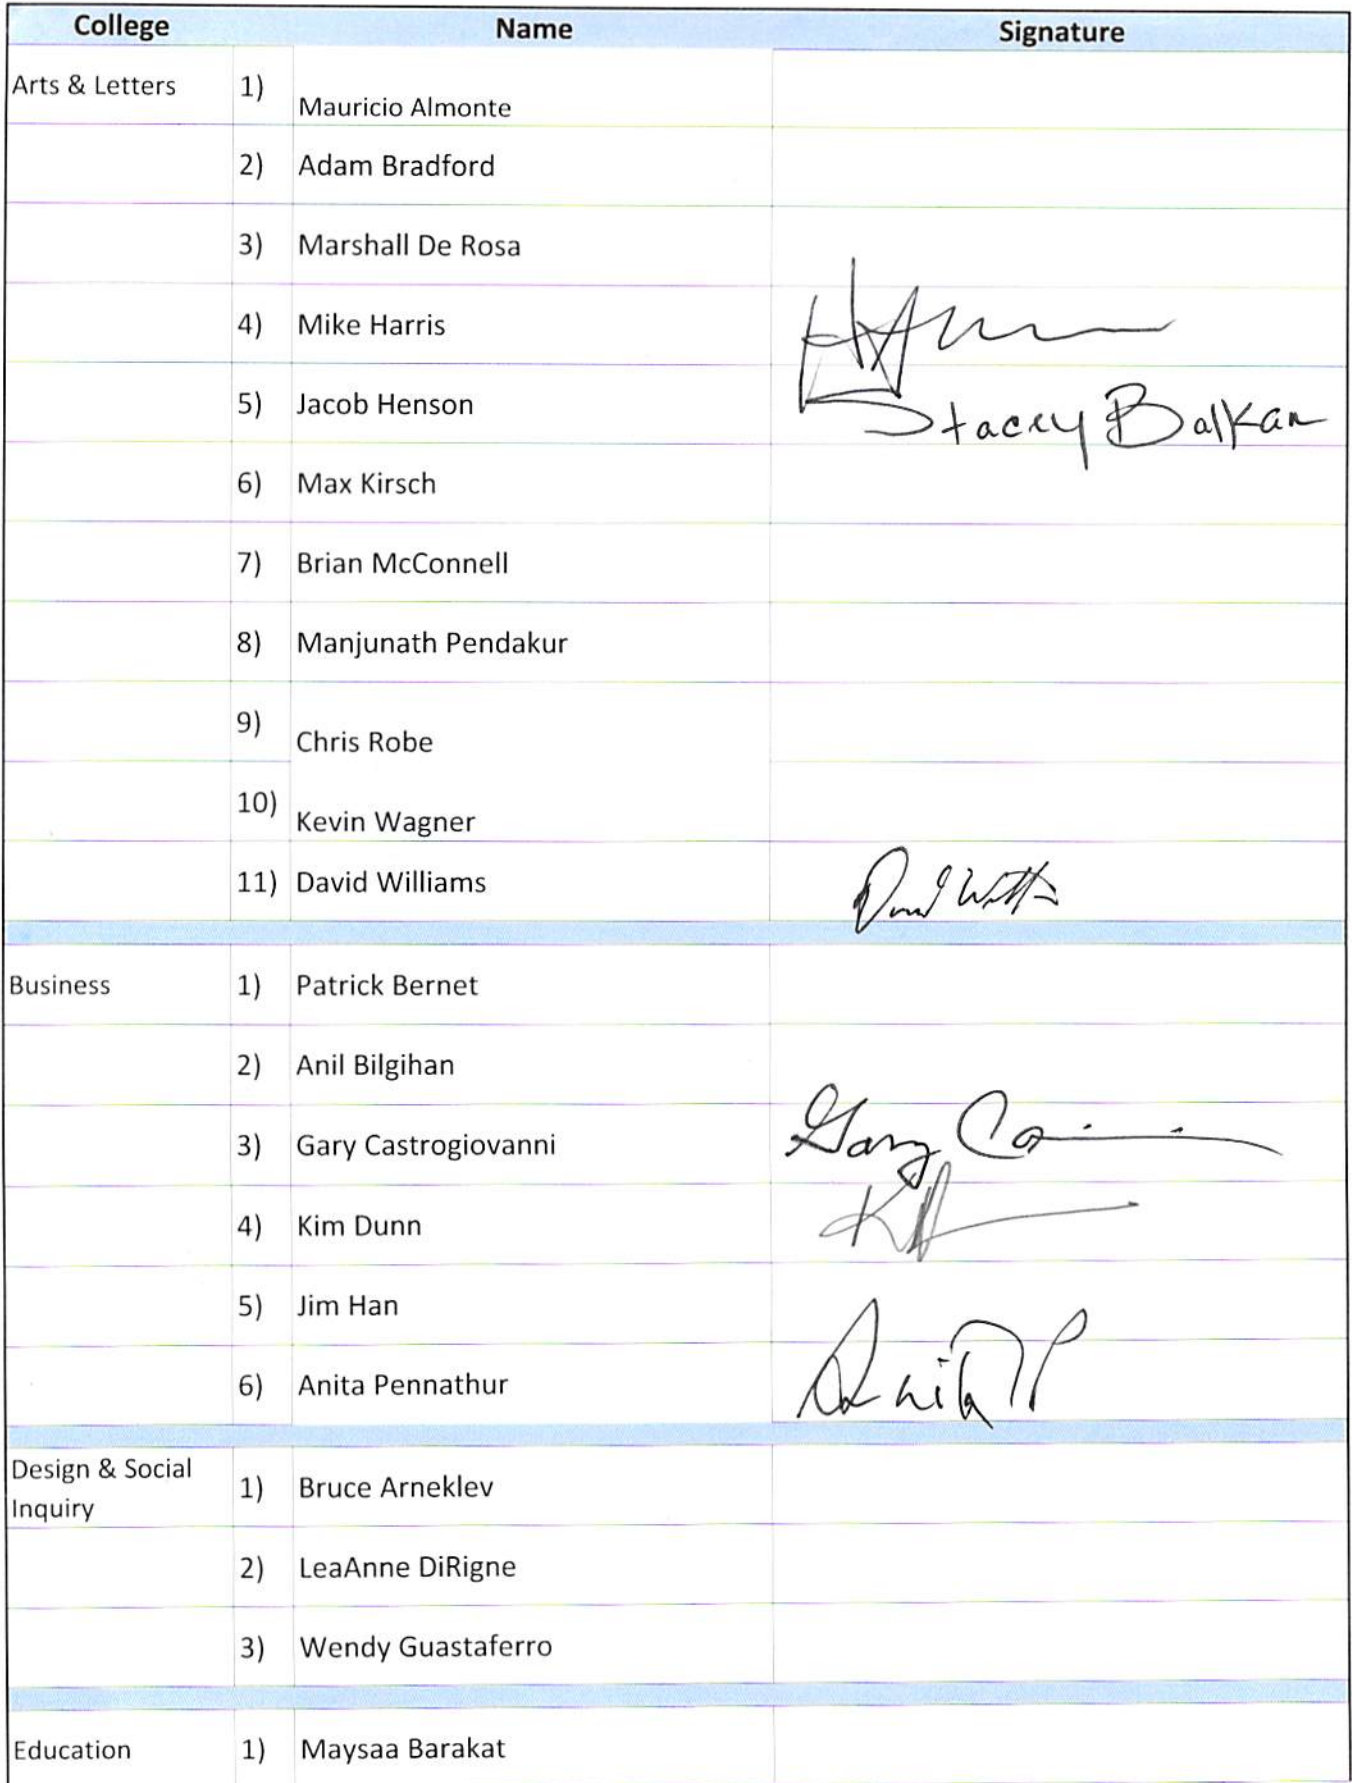 College Name Signature
Arts & Letters 1) Mauricio Almonte
2) Adam Bradford
3) Marshall De Rosa
4) Mike Harris
5) Jacob Henson Stacey Balkan
6) Max Kirsch
7) Brian McConnell
8) Manjunath Pendakur
9) Chris Robe
10) Kevin Wagner
11) David Williams
Business 1) Patrick Bernet
2) Anil Bilgihan
3) Gary Castrogiovanni Gary
4) Kim Dunn
5) Jim Han
6) Anita Pennathur Anita P
Design & Social
Inquiry 1) Bruce Arneklev
2) LeaAnne DiRigne
3) Wendy Guastaferro
Education 1) Maysaa Barakat